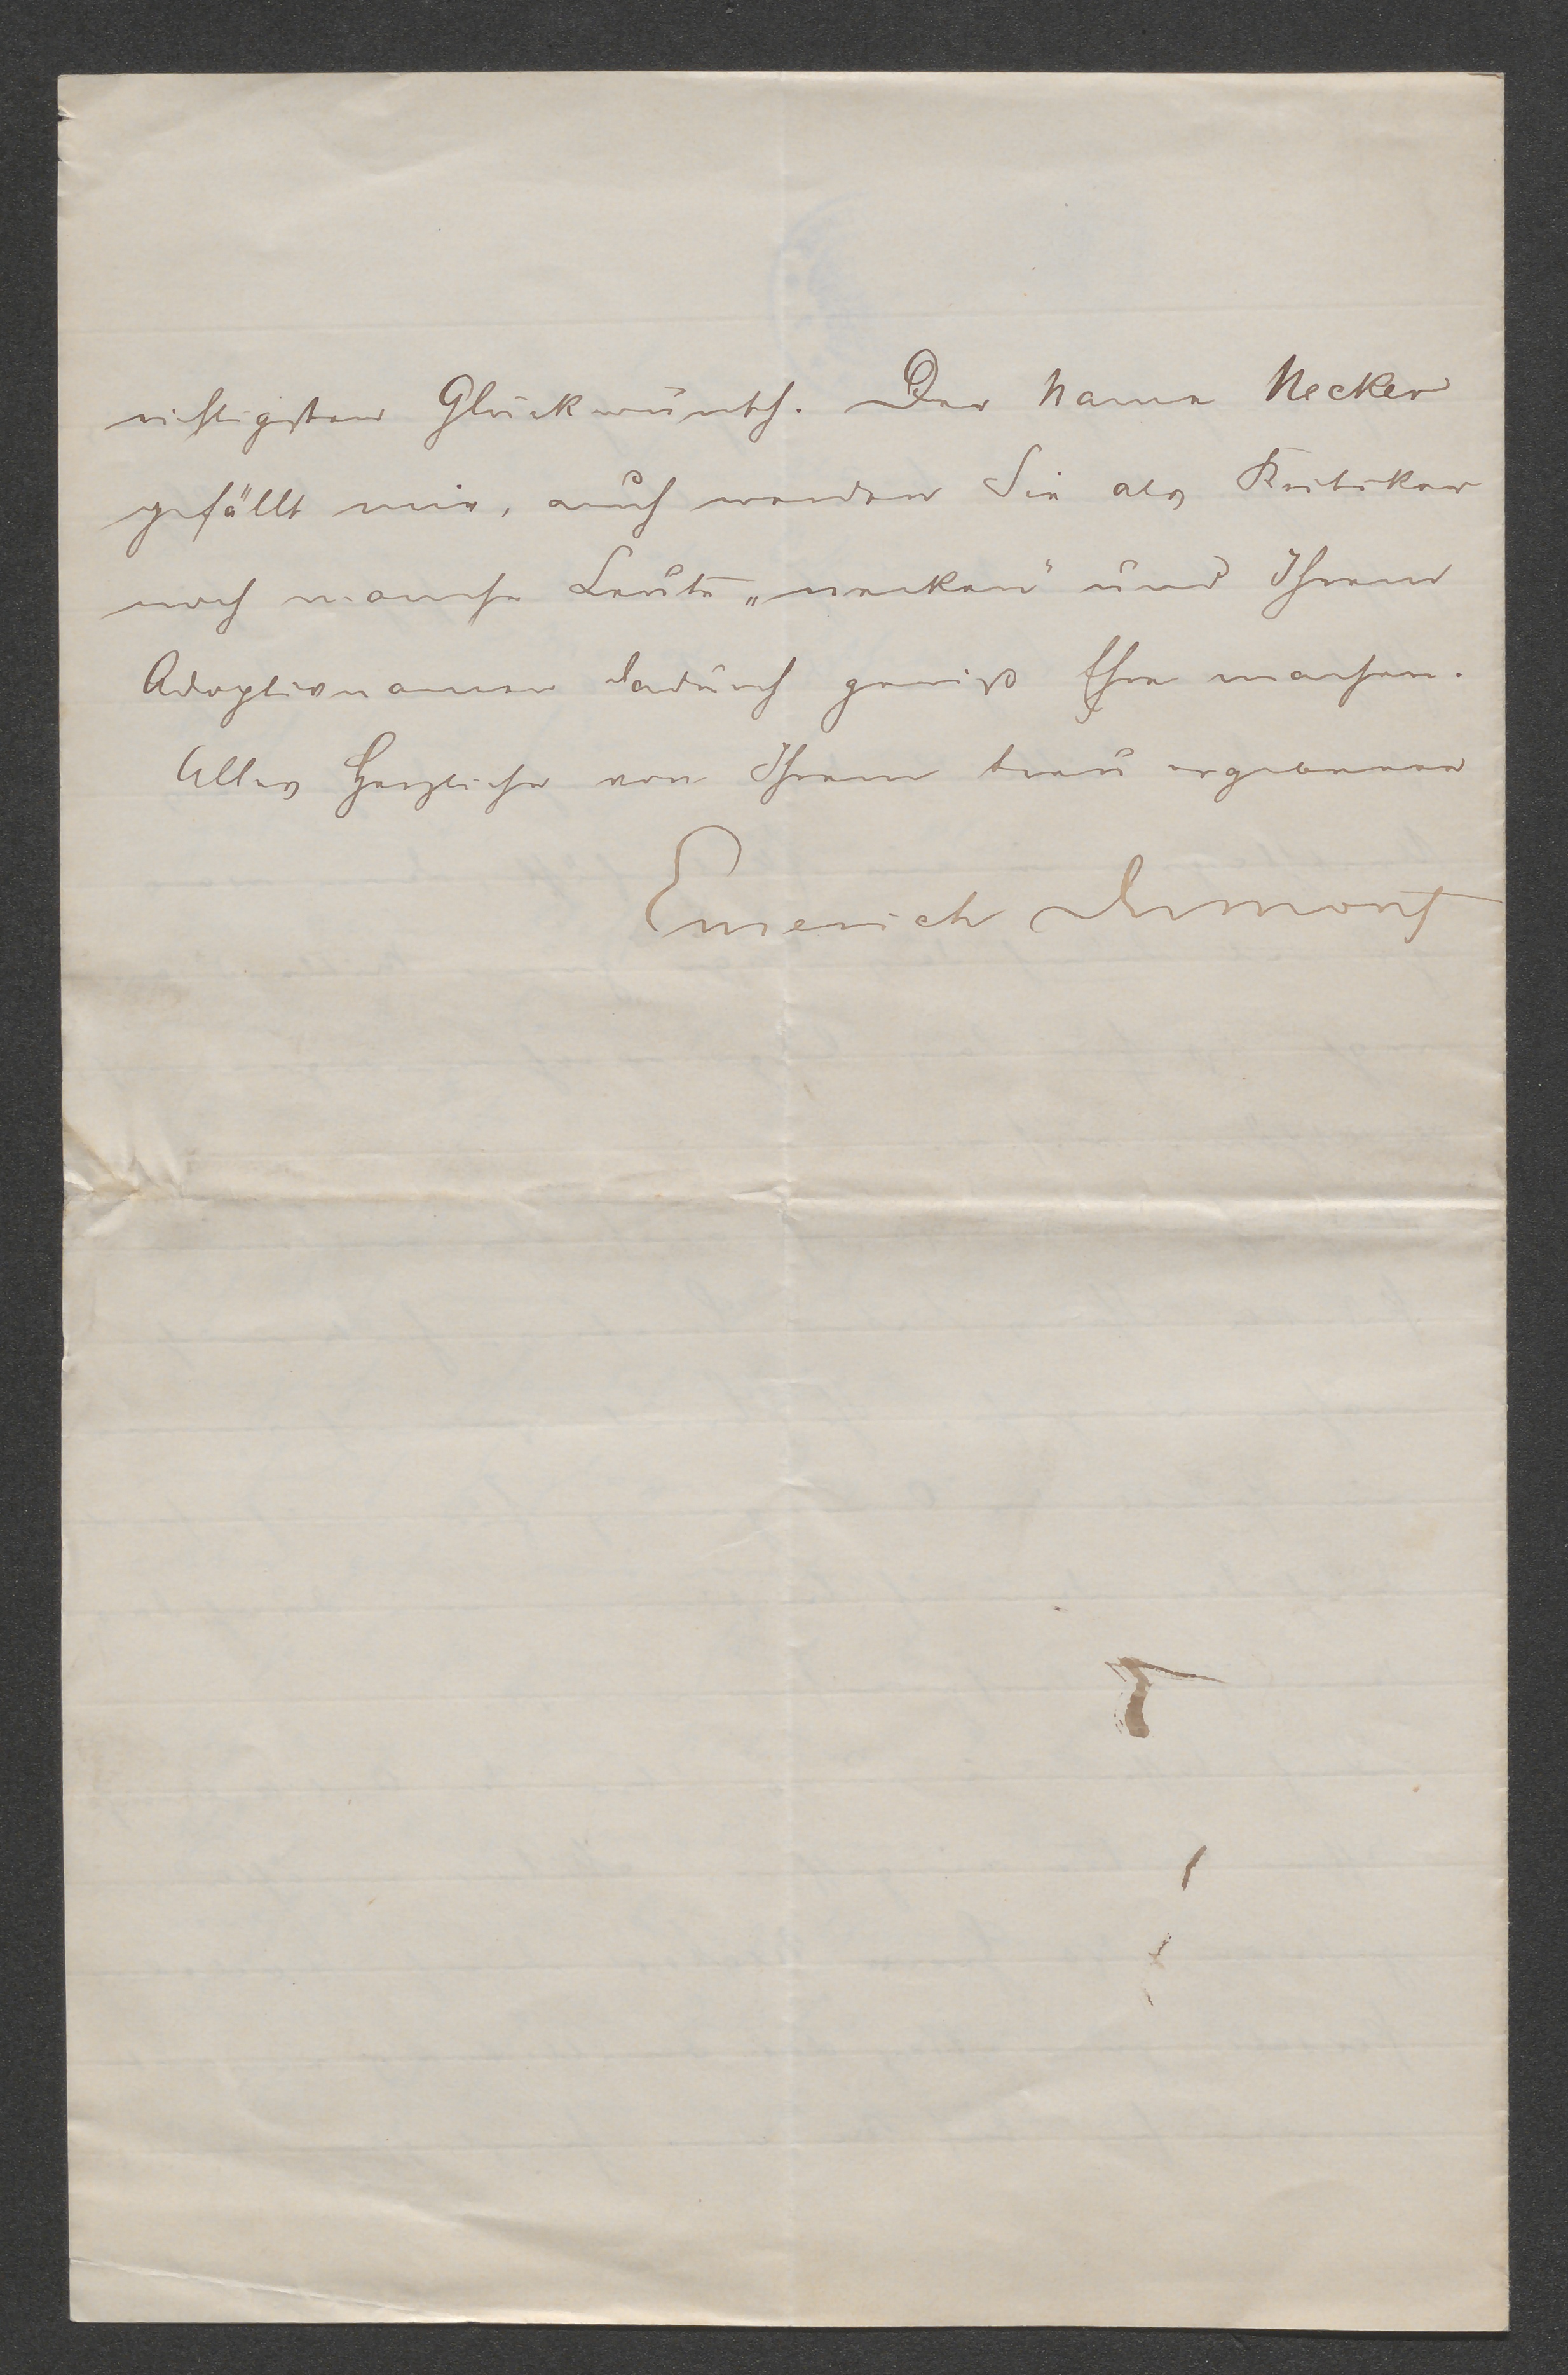 richtigsten Glückwunsch. Der Name Necker
gefällt mir, auch werden Sie als Kritiker
noch manche Leute „necken“ und Ihrem
Adoptivnamen dadurch gewiß Ehre machen.
Alles Herzliche von Ihrem treu ergebenen
Emerich Dumont